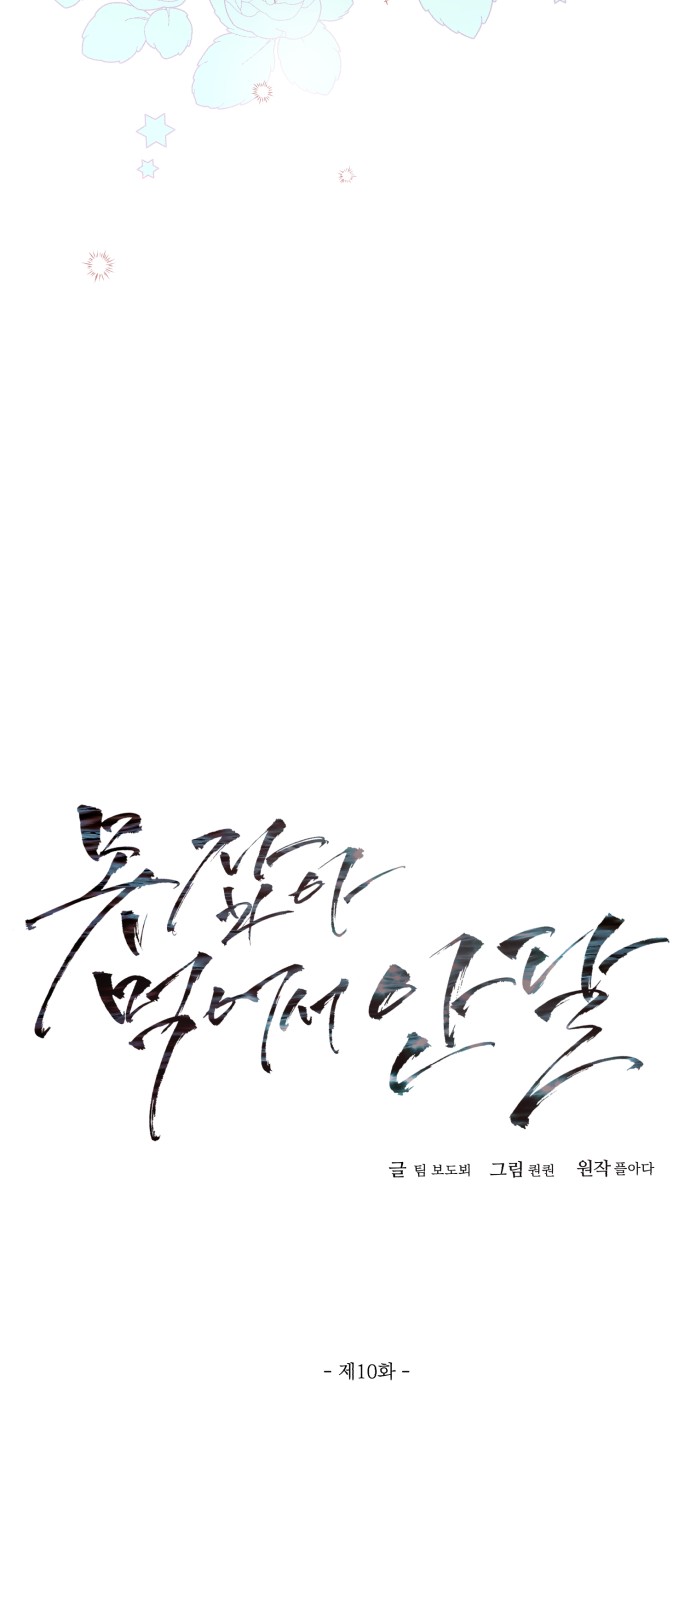 못 잡아
먹어서 안달
글 팀 보도뵈 그림 퀀퀀 원작 플아다
- 제10화 -